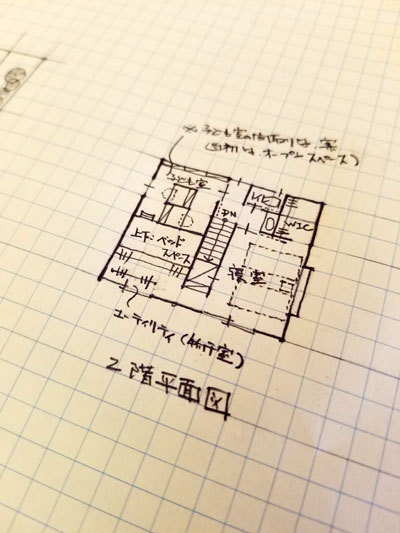 ※子ども室の間仕切りは、案
(当初は、オープンスペース)
子ども室
W.C
DN
W.I.C
上下:ベッド
スペース
寝室
ユーティリティ(物干室)
2階平面図